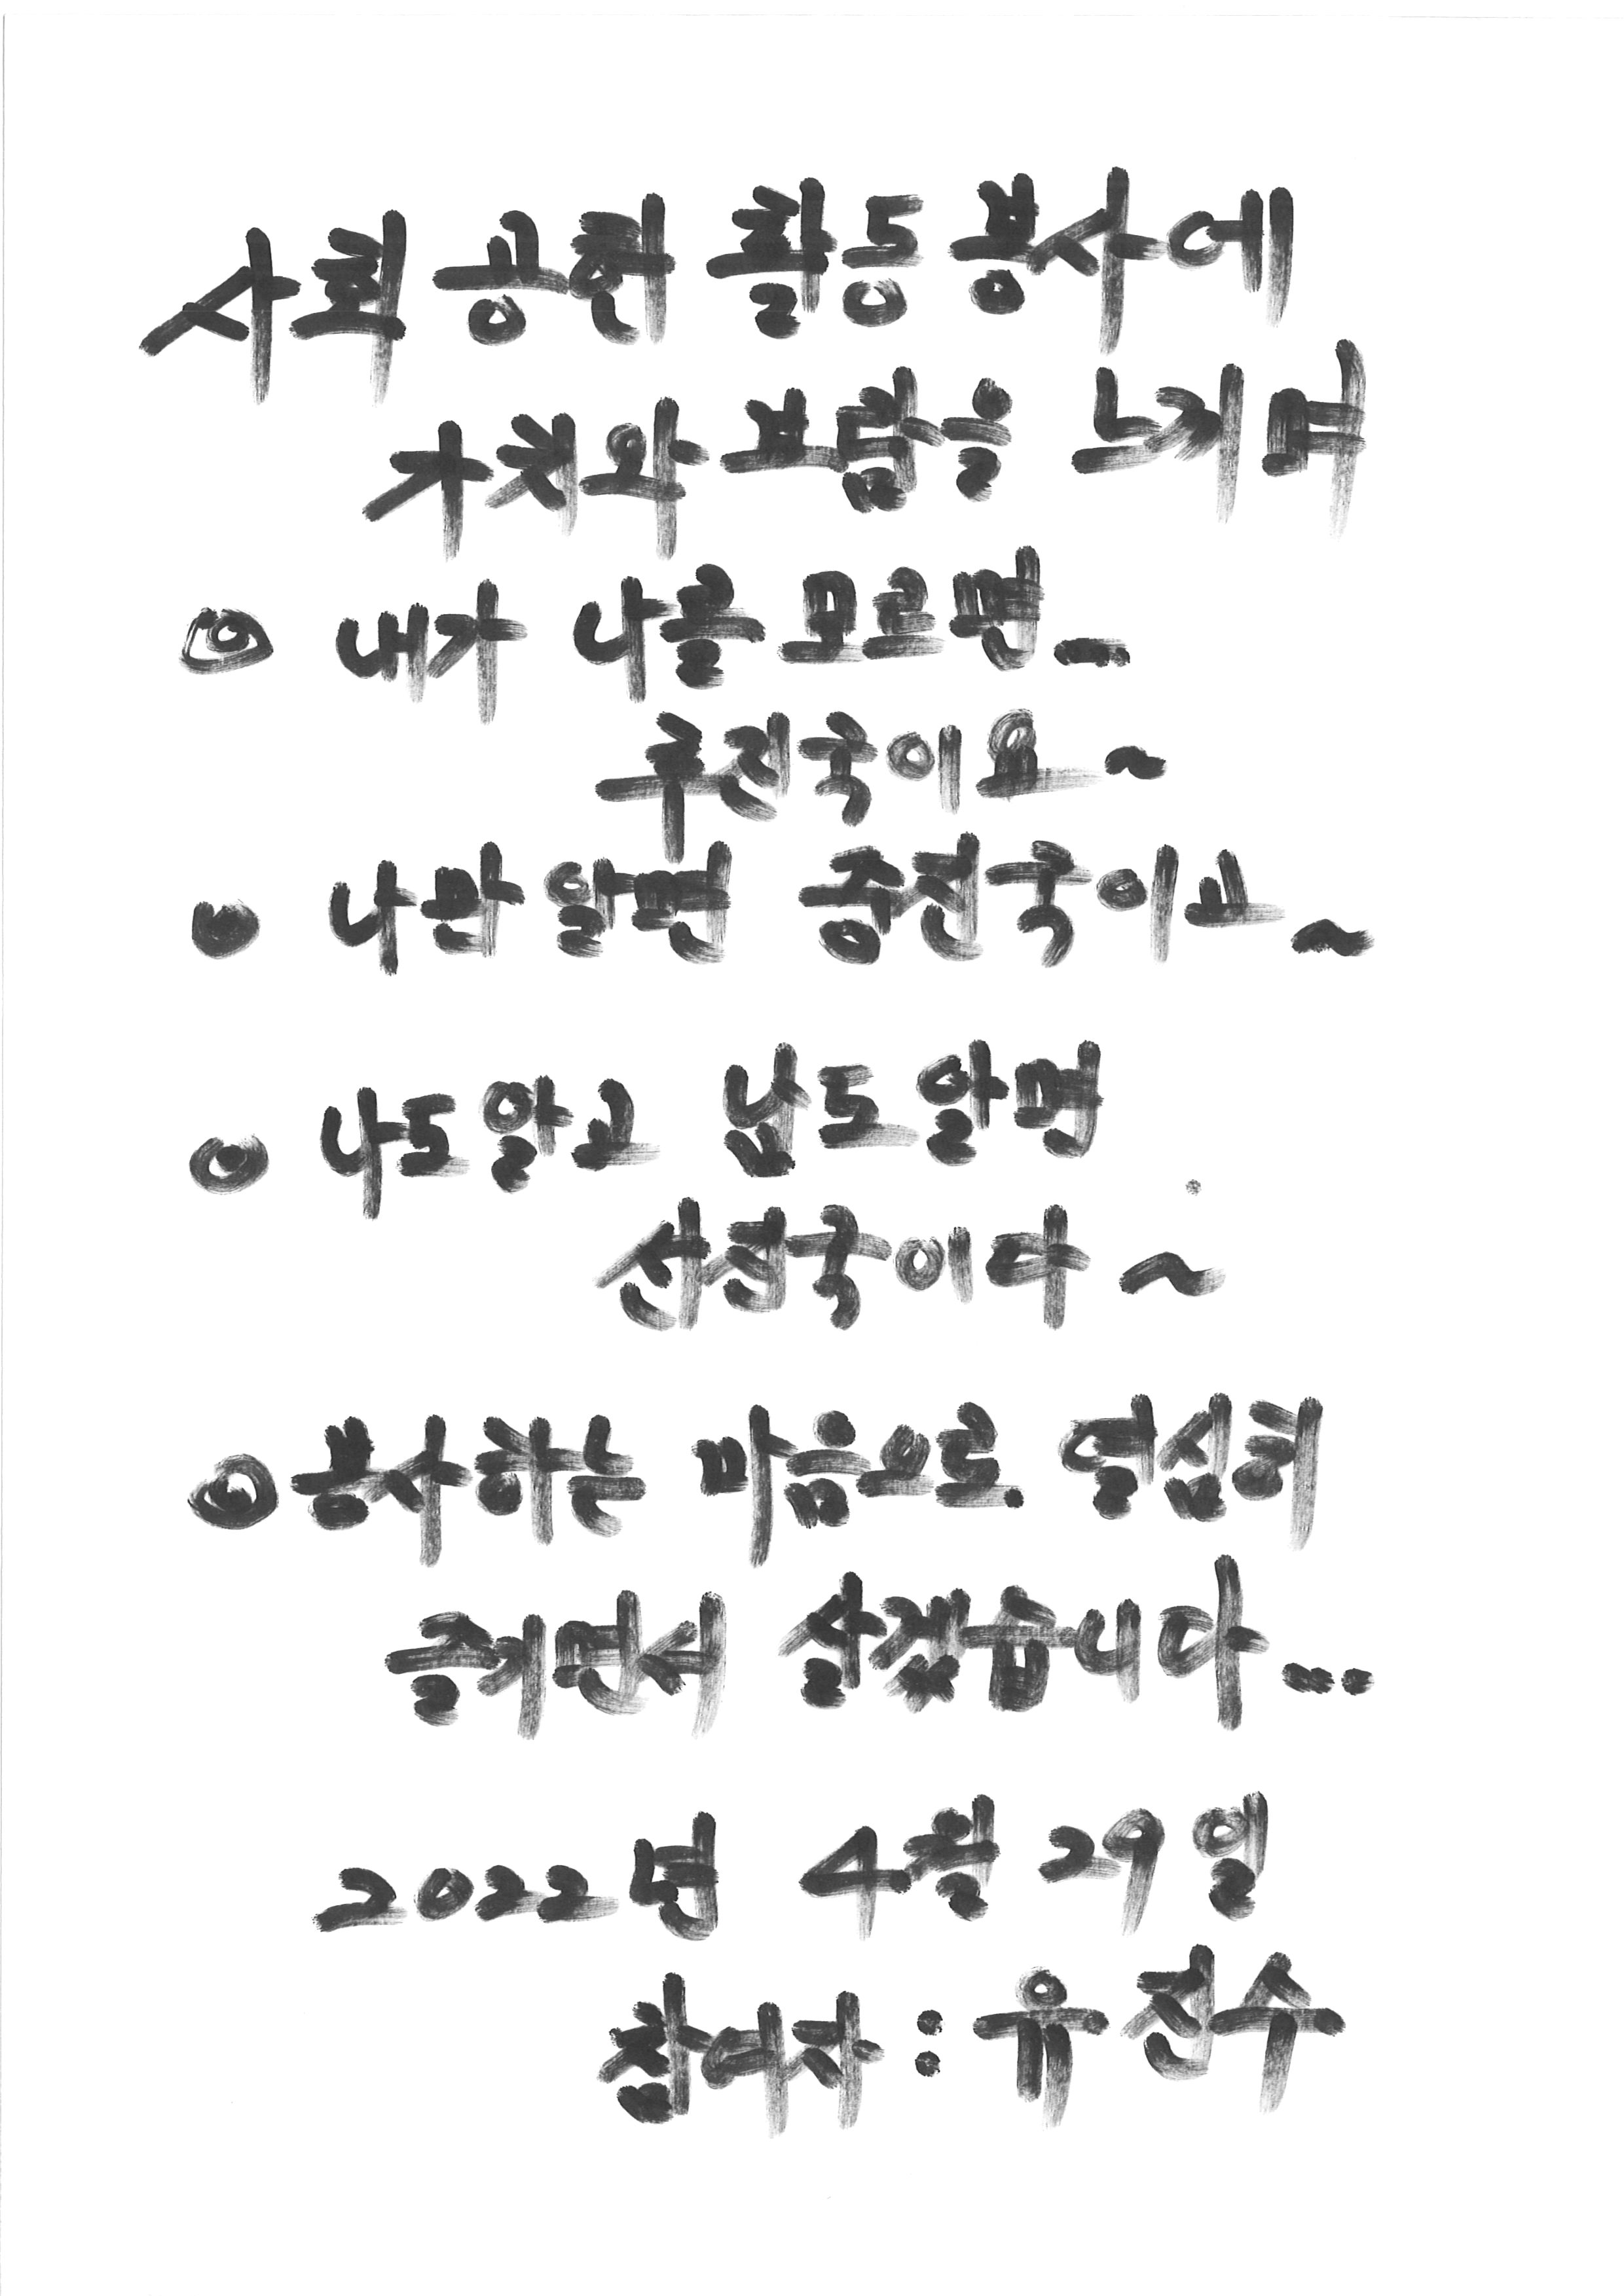 사회 공헌 활동 봉사에
가치와 보람을 느끼며
◎ 내가 나를 모르면...
후진국이요~
◎ 나만 알면 중진국이고~
◎ 나도 알고 남도 알면
선진국이다~
◎ 봉사하는 마음으로. 열심히
즐기면서 살겠습니다...
2022년 4월 29일
참여자 : 유진수